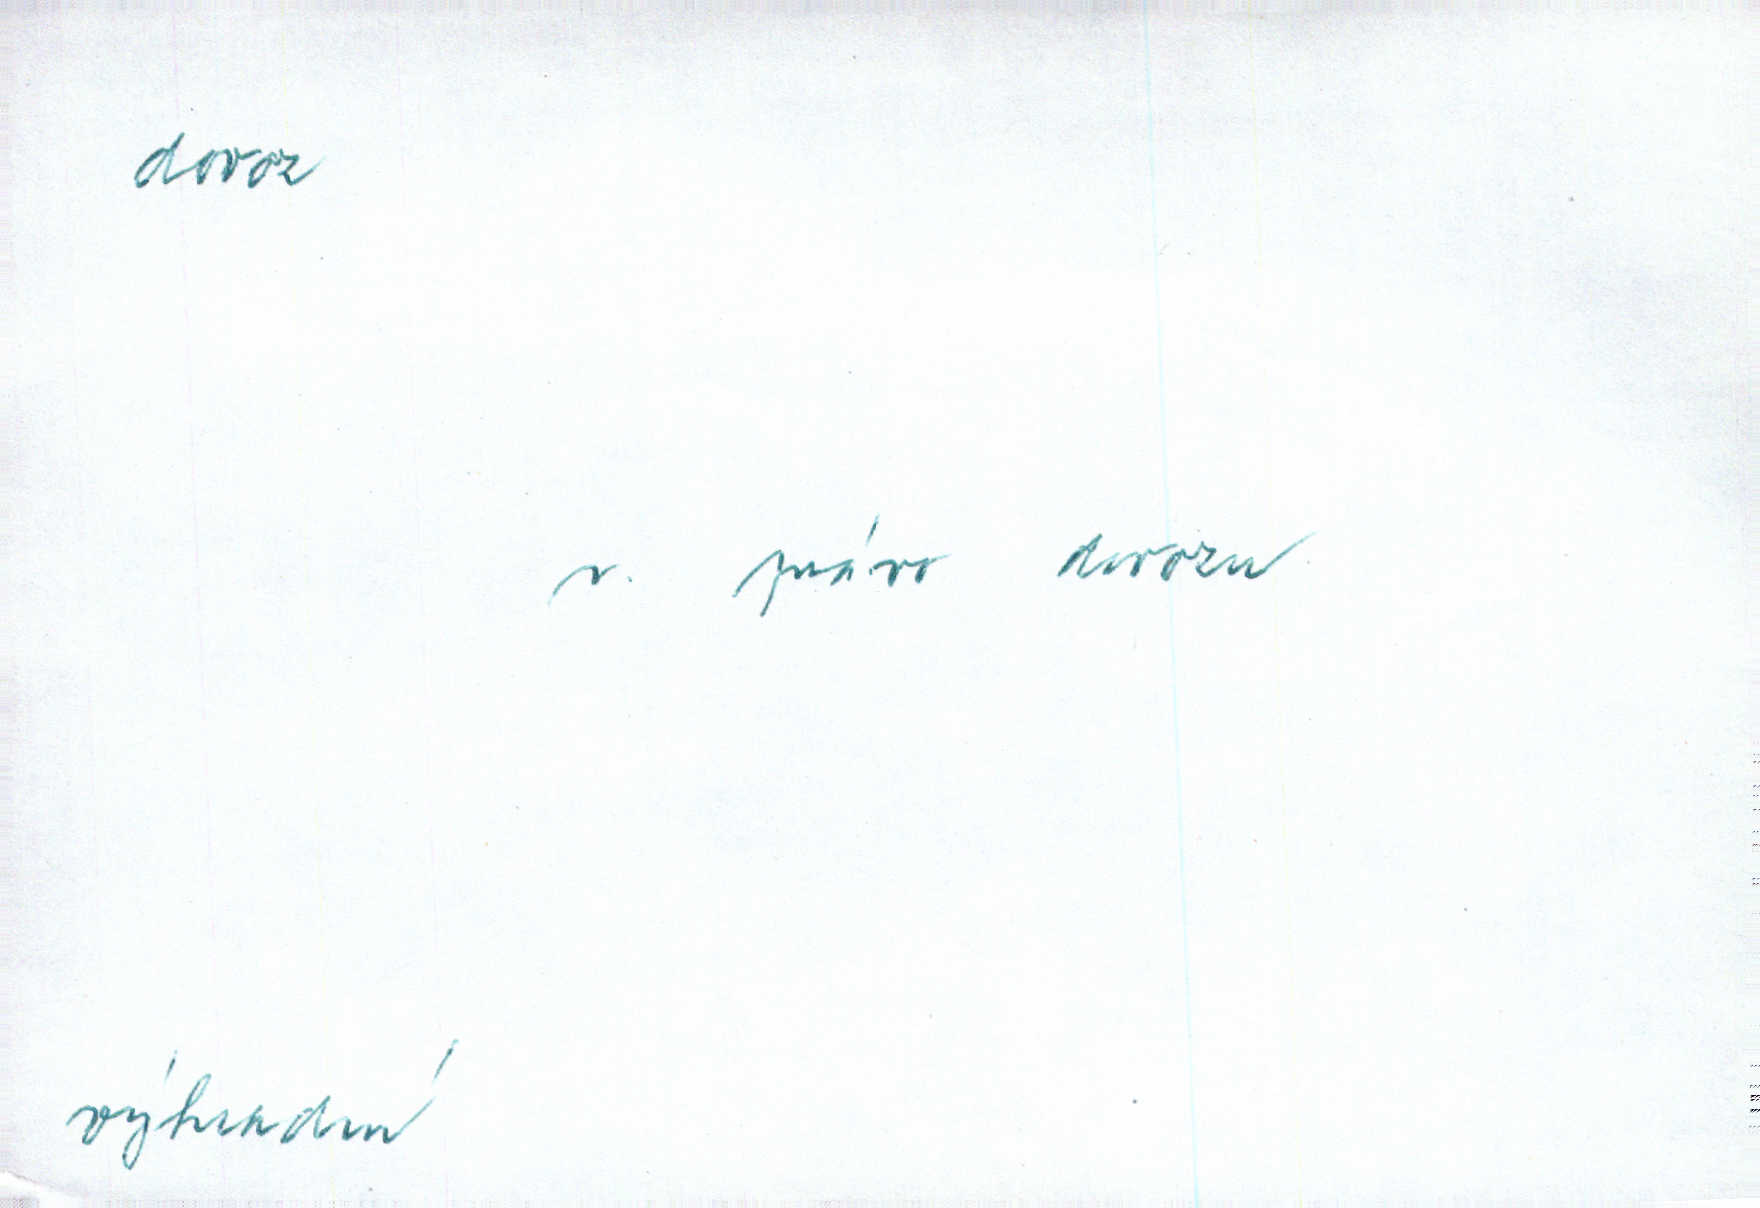 dovoz
v. právo dovozu
výhradní